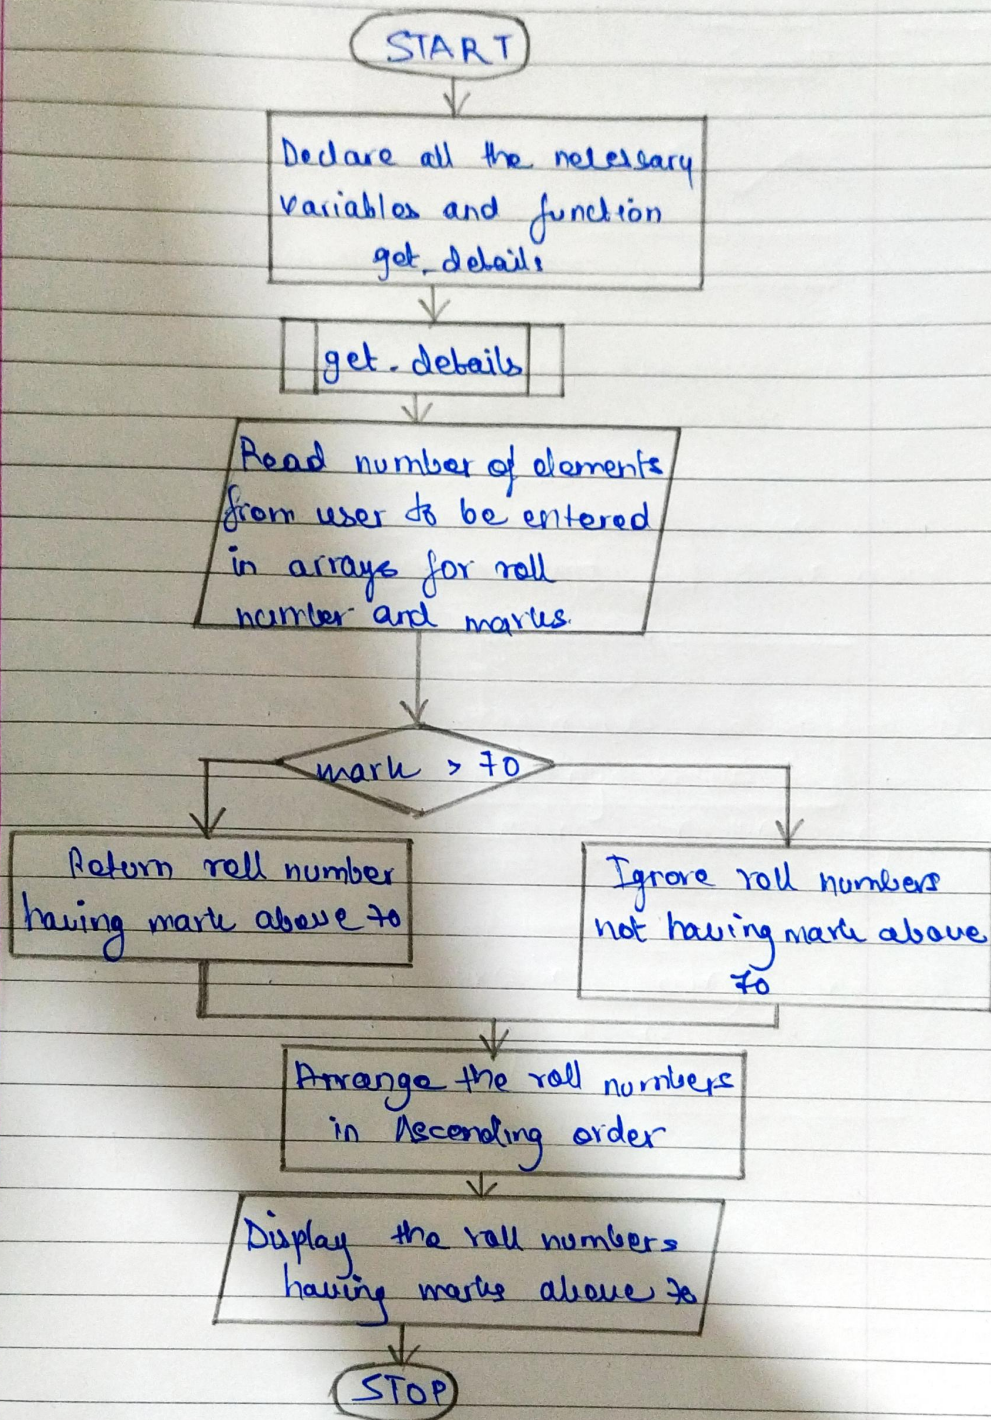 START
Declare all the necessary
variables and function
get_details
get_details
Read number of elements
from user to be entered
in arrays for roll
number and marks.
mark > 70
Return roll number
having mark above 70
Ignore roll numbers
not having mark above
70
Arrange the roll numbers
in Ascending order
Display the roll numbers
having marks above 70
STOP